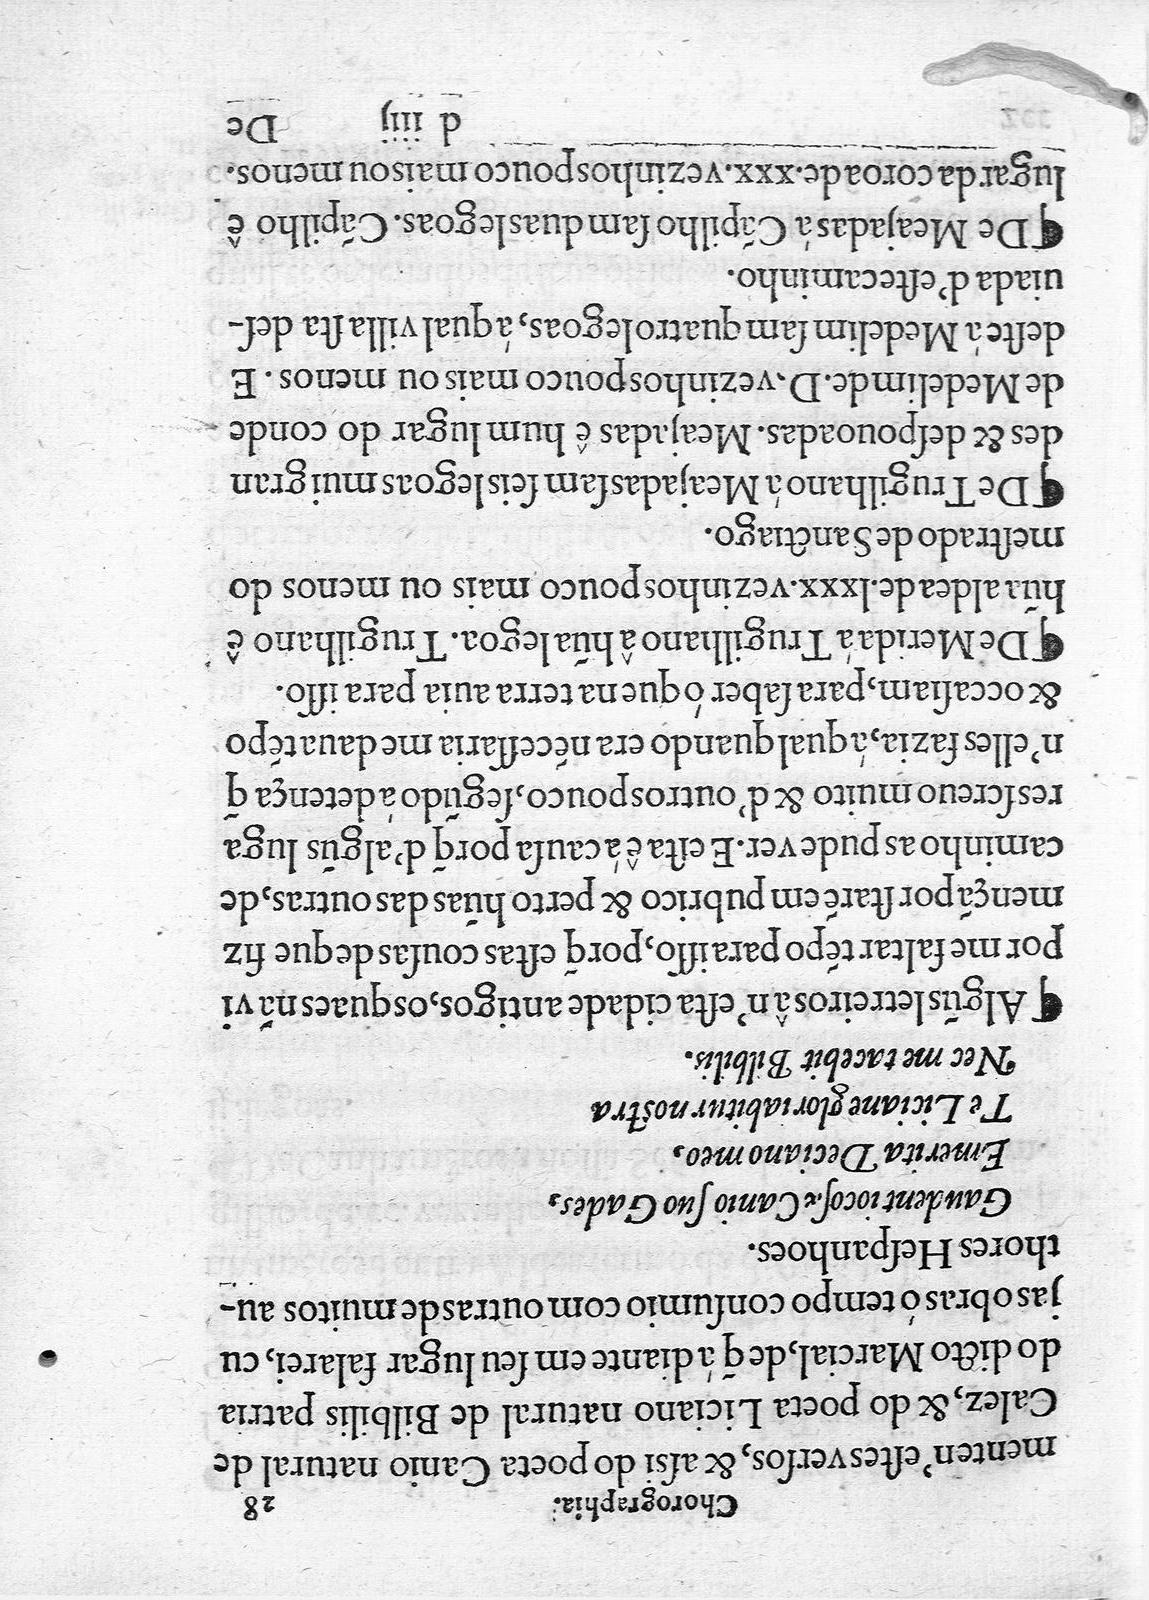 Chorographia. 28
menten'estes versos, & assi do poeta Canio natural de
Calez, & do poeta Liciano natural de Bilbilis patria
do dicto Marcial, de q̃ á diante em seu lugar falarei, cu
jas obras ó tempo consumio com outras de muitos au-
thores Hespanhoes.
Gaudent iocosæ Canio suo Gades,
Emerita Deciano meo,
Te Liciane gloriabitur nostra
Nec me tacebit Bilbilis.
¶ Algũs letreiros â n'esta cidade antigos, os quaes nã vi
por me faltar tẽpo para isso, porq̃ estas cousas de que fiz
mençã por starẽ em pubrico & perto hũas das outras, de
caminho as pude ver. E esta ê á causa porq̃ d'algũs luga
res screuo muito & d'outros pouco, segũdo á detença q̃
n'elles fazia, á qual quando era necessaria me daua tẽpo
& occasiam, para saber ó que na terra auia para isso.
¶ De Merida á Trugilhano â hũa legoa. Trugilhano ê
hũa aldea de .lxxx. vezinhos pouco mais ou menos do
mestrado de Sanctiago.
¶ De Trugilhano á Meajadas sam seis legoas mui gran
des & despouoadas. Meajadas ê hum lugar do conde
de Medelim de .D. vezinhos pouco mais ou menos. E
deste á Medelim sam quatro legoas, á qual villa sta des-
uiada d'este caminho.
¶ De Meajadas á Cápilho sam duas legoas. Cápilho ê
lugar da coroa de .xxx. vezinhos pouco mais ou menos.
d iiij De